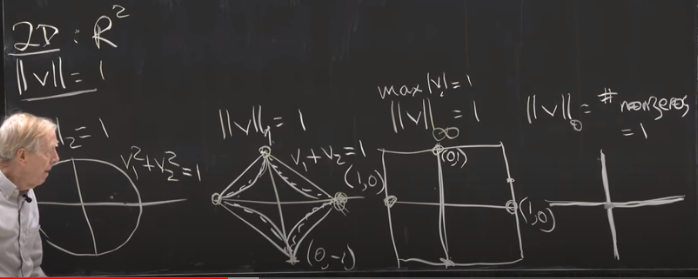 2D : R²
||v|| = 1
₂ = 1
v₁² + v₂² = 1
||v||₁ = 1
v₁ + v₂ = 1
(0, -1)
max |vᵢ| = 1
||v||∞ = 1
(1, 0)
(0, )
(1, 0)
||v||₀ = # nonzeros
= 1